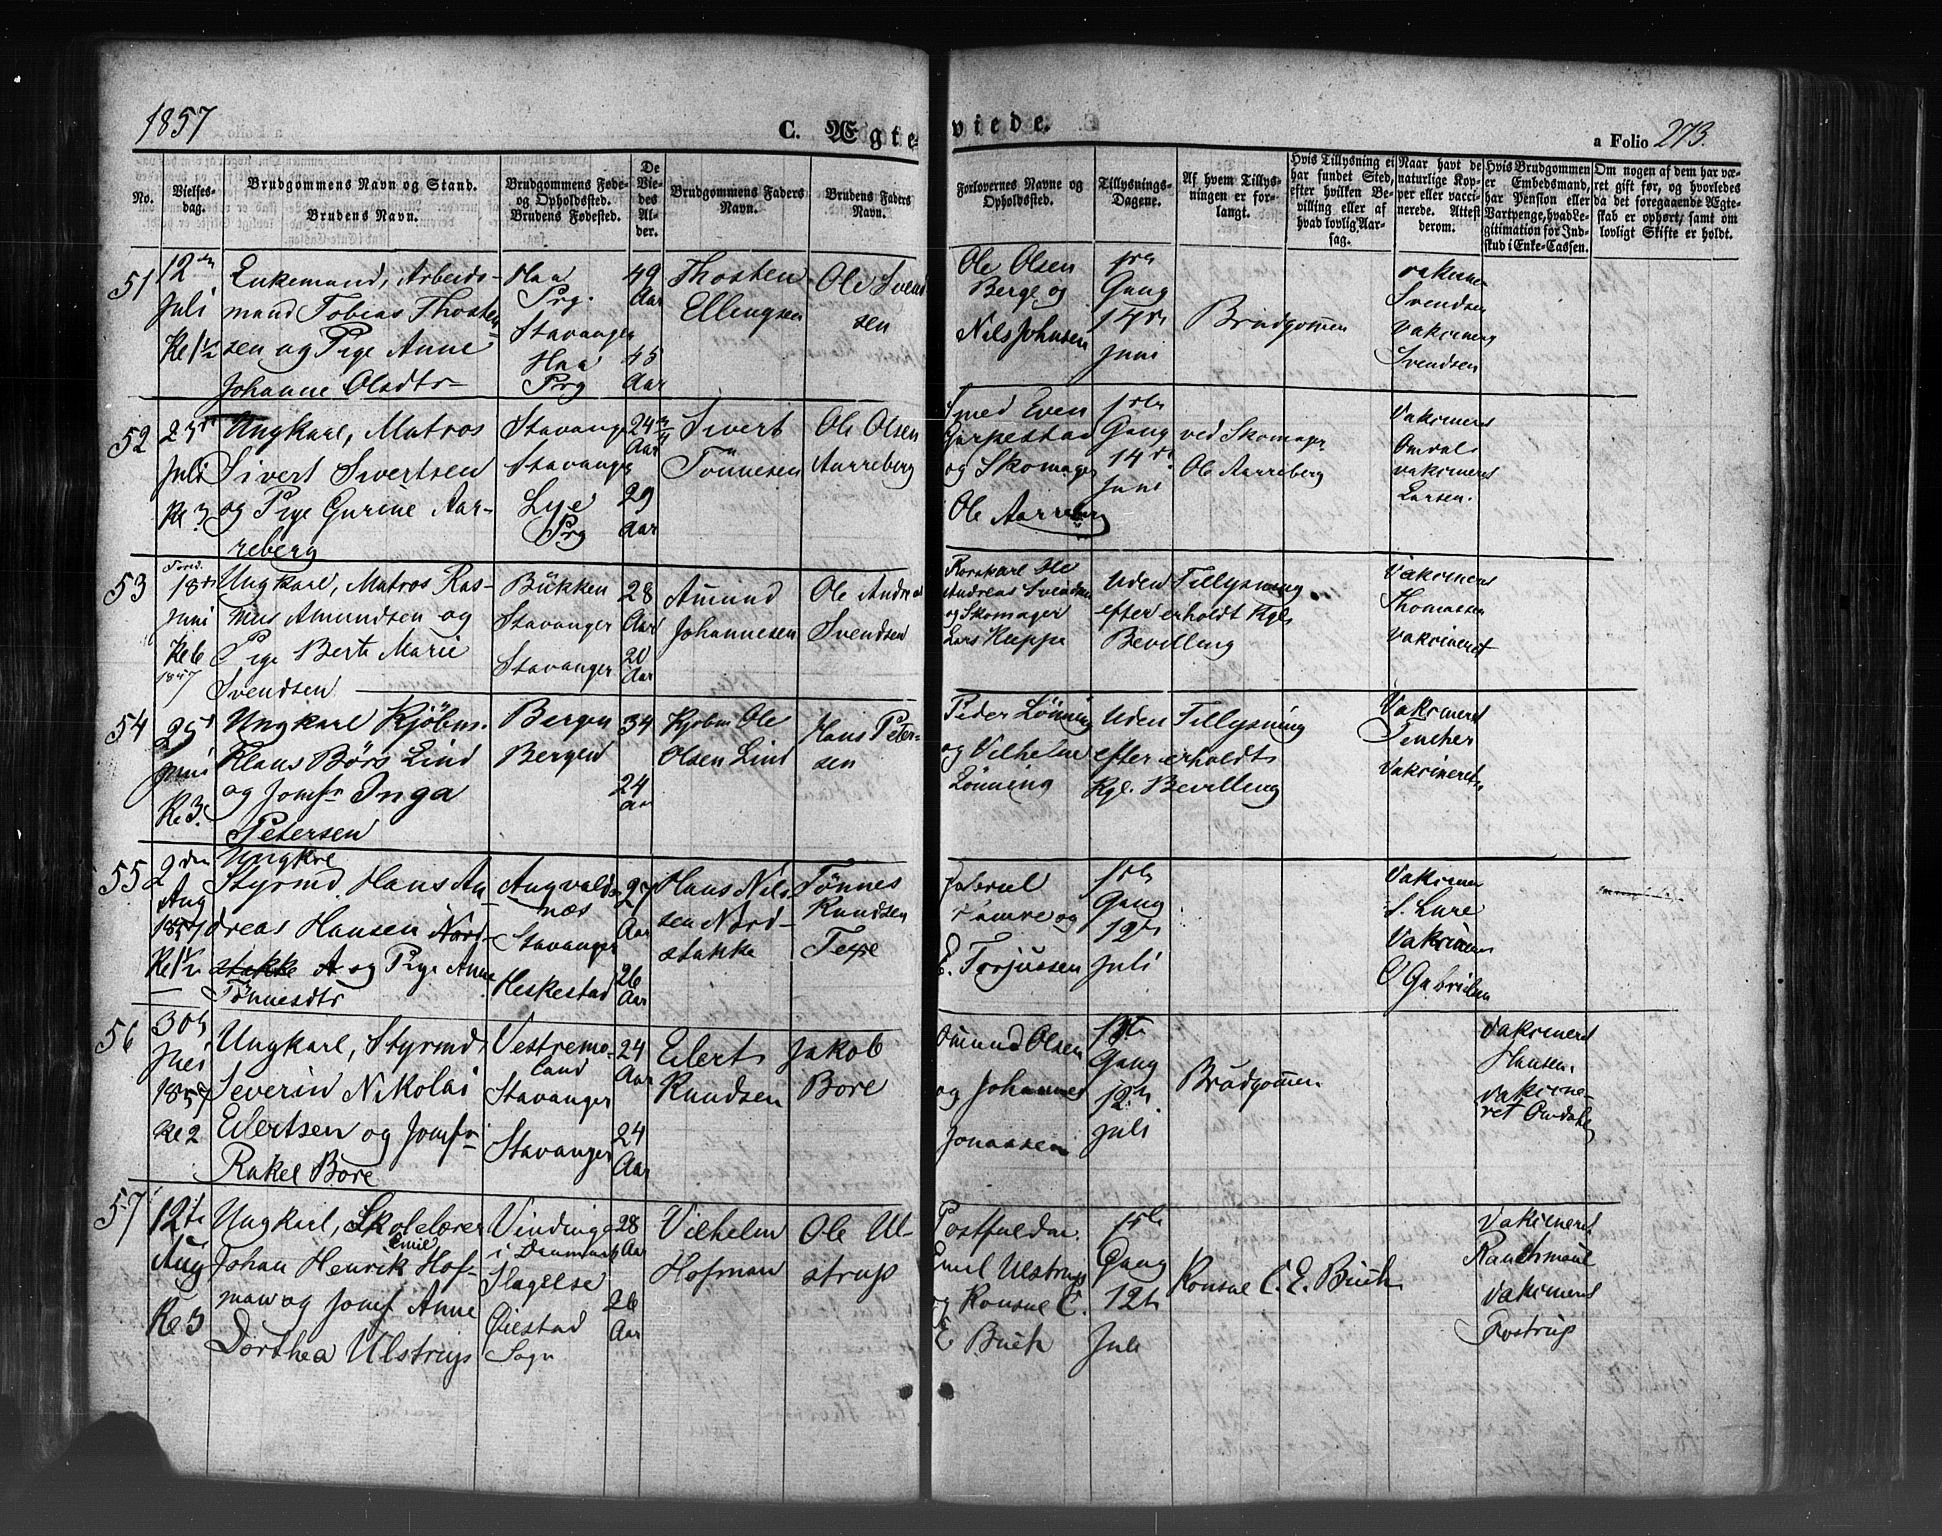 1857
C. Ægte-
viede.
a Folio 273.
No.
Vielses-
dag.
Brudgommens Navn og Stand.
Brudens Navn.
Brudgommens Føde-
og Opholdsted.
Brudens Fødested.
De
Vie-
des
Al-
der.
Brudgommens Faders
Navn.
Brudens Faders
Navn.
Forlovernes Navne og
Opholdsted.
Tillysnings-
Dagene.
Af hvem Tillys-
ningen er for-
langt.
Hvis Tillysning ei
har fundet Sted,
efter hvilken Be-
villing eller af
hvad lovlig Aar-
sag.
Naar havt de
naturlige Kop-
per eller vacci-
nerede. Attest
derom.
Hvis Brudgommen
er Embedsmand,
har Pension eller
Vartpenge, hvad Le-
gitimation for Ind-
skud i Enke-Cassen.
Om nogen af dem har væ-
ret gift før, og hvorledes
da det foregaaende Ægte-
skab er ophørt, samt om
lovligt Skifte er holdt.
51
12te
Juli
Kl 1½
Enkemand, Arbeids-
mand Tobias Thosten-
sen og Pige Anne
Johanne Olsdtr
Haa
Prg.
Stavanger
Haa
Prg
49
Aar
45
Aar
Thosten
Ellingsen
Ole Svend
sen
Ole Olsen
Berge og
Nils Johnsen
Gang
14de
Juni
Brudgommen
Svendsen
Vaksineret
Svendsen
52
23de
Juli
Kl 3
Ungkarl, Matros
Sivert Sivertsen
og Pige Gurine Aar-
reberg
Stavanger
Stavanger
Lye
Prg
24¾
Aar
29
Aar
Sivert
Tönnesen
Ole Olsen
Aarreberg
Smed Even
og Skomager
Ole Aarreberg
Gang
14de
Juni
ved Skomagr
Ole Aarreberg
Vaksineret
Omdal
vaksineret
Larsen.
53
18de
Juni
Kl 6
1857
Ungkarl, Matros Ras-
mus Amundsen og
Pige Berte Marie
Svendsen
Bukken
Stavanger
Stavanger
28
Aar
20
Aar
Amund
Johannesen
Ole Andreas
Svendsen
Andreas Svendsen
og Skomager
Lars Kuppe
Uden Tillysning
efter erholdt Kgl.
Bevilling
Vaksineret
Thomsen
Vaksineret
54
25de
Juni
Kl 3.
Ungkarl Kjöbm.
Klaus Börs Lind
og Jomfr Inga
Petersen
Bergen
Bergen
34
24
Aar
Kjöbm Ole
Olsen Lind
Hans Peter-
sen
Peder Lönning
og Vilhelm
Lönning
Uden Tillysning
efter erholdt
Kgl. Bevilling
Vaksineret
Vaksineret
55
2den
Aug
1857
Kl 1½
Ungkrl
Styrmd Hans An-
dreas Hansen Nord-
stakke og Pige Anne
Tönnesdtr
Augvalds-
næs
Stavanger
Heskestad
27
Aar
26
Aar
Hans Nils-
sen Nord-
stakke
Tönnes
Knudsen
Gabriel
og
E. Torjussen
Gang
12te
Juli
S. Lure
C Gabrielsen
56
30te
Juli
1857
Kl 2
Ungkarl, Styrmd,
Severin Nikolai
Eilertsen og Jomfr
Rakel Bore
Vestremo-
land
Stavanger
Stavanger
24
Aar
24
Aar
Eilert
Knudsen
Jakob
Bore
Omund Olsen
og Johannes
Jonassen
Gang
12te
Juli
Brudgommen
Vaksineret
Hansen.
vaksine-
ret Omdahl
57
12te
Aug
Kl 3
Ungkarl, Skolelærer
Emil
Johan Henrik Hof-
man og Jomf Anne
Dorthea Ulstrup
Vindinge
i Danmark
Slagelse
Öiestad
Sogn
28
Aar
26
Aar
Vilhelm
Hofman
Ole Ul-
strup
Postfuldm.
Emil Ulstrup
og Konsul C.
E Buch
Gang
12te
Juli
Konsul C. E. Buch
Vaksineret
Vaksineret
Rostrup